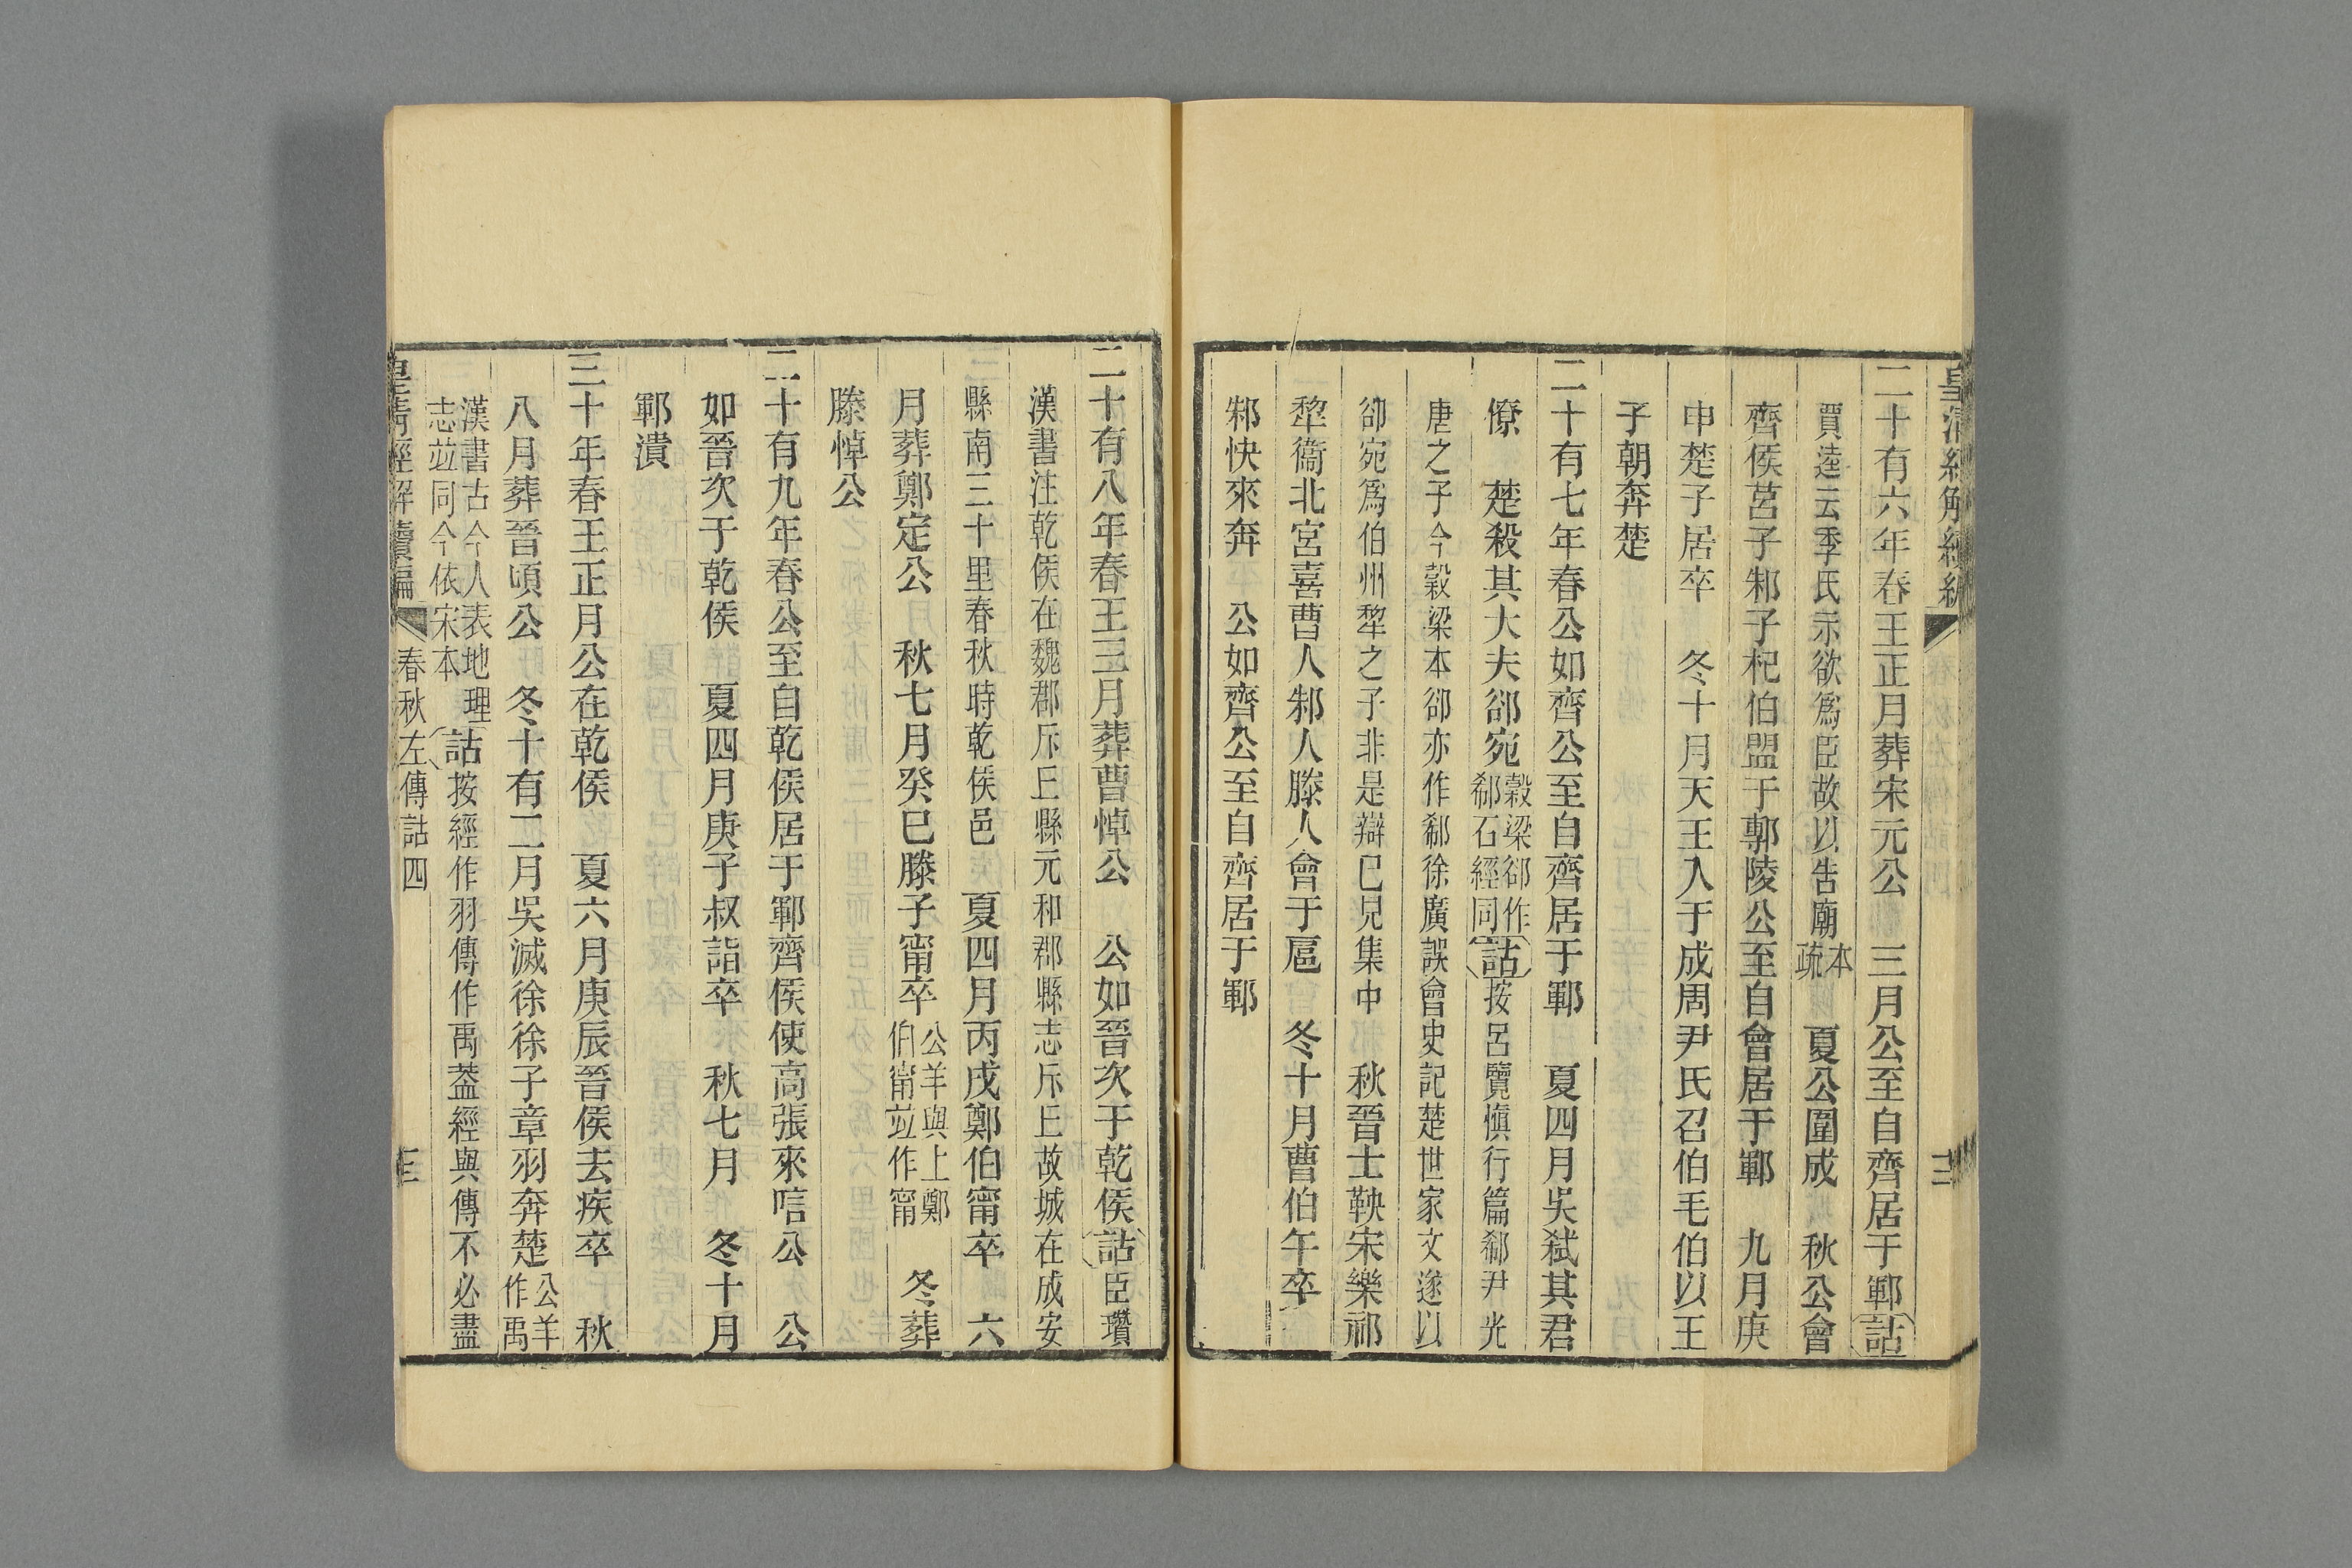 皇清經解續編
二十有六年春王正月葬宋元公　三月公至自齊居于鄆詁
賈逵云季氏示欲爲臣故以告廟本疏　夏公圍成　秋公會
齊侯莒子邾子杞伯盟于鄟陵公至自會居于鄆　九月庚
申楚子居卒　冬十月天王入于成周尹氏召伯毛伯以王
子朝奔楚
二十有七年春公如齊公至自齊居于鄆　夏四月吳弑其君
僚　楚殺其大夫郤宛穀梁郤作郗石經同詁按呂覽愼行篇郗尹光
唐之子今穀梁本郤亦作郗徐廣誤會史記楚世家文遂以
郤宛爲伯州犂之子非是辯已見集中　秋晉士鞅宋樂祁
犂衞北宮喜曹人邾人滕人會于扈　冬十月曹伯午卒
邾快來奔　公如齊公至自齊居于鄆
二十有八年春王三月葬曹悼公　公如晉次于乾侯詁臣瓚
漢書注乾侯在魏郡斥丘縣元和郡縣志斥丘故城在成安
縣南三十里春秋時乾侯邑　夏四月丙戌鄭伯甯卒　六
月葬鄭定公　秋七月癸巳滕子甯卒公羊與上鄭伯甯竝作甯　冬葬
滕悼公
二十有九年春公至自乾侯居于鄆齊侯使高張來唁公　公
如晉次于乾侯　夏四月庚子叔詣卒　秋七月　冬十月
鄆潰
三十年春王正月公在乾侯　夏六月庚辰晉侯去疾卒　秋
八月葬晉頃公　冬十有二月吳滅徐徐子章羽奔楚公羊作禹
漢書古今人表地理志竝同今依宋本詁按經作羽傳作禹葢經與傳不必盡
皇淸經解續編　春秋左傳詁四　三